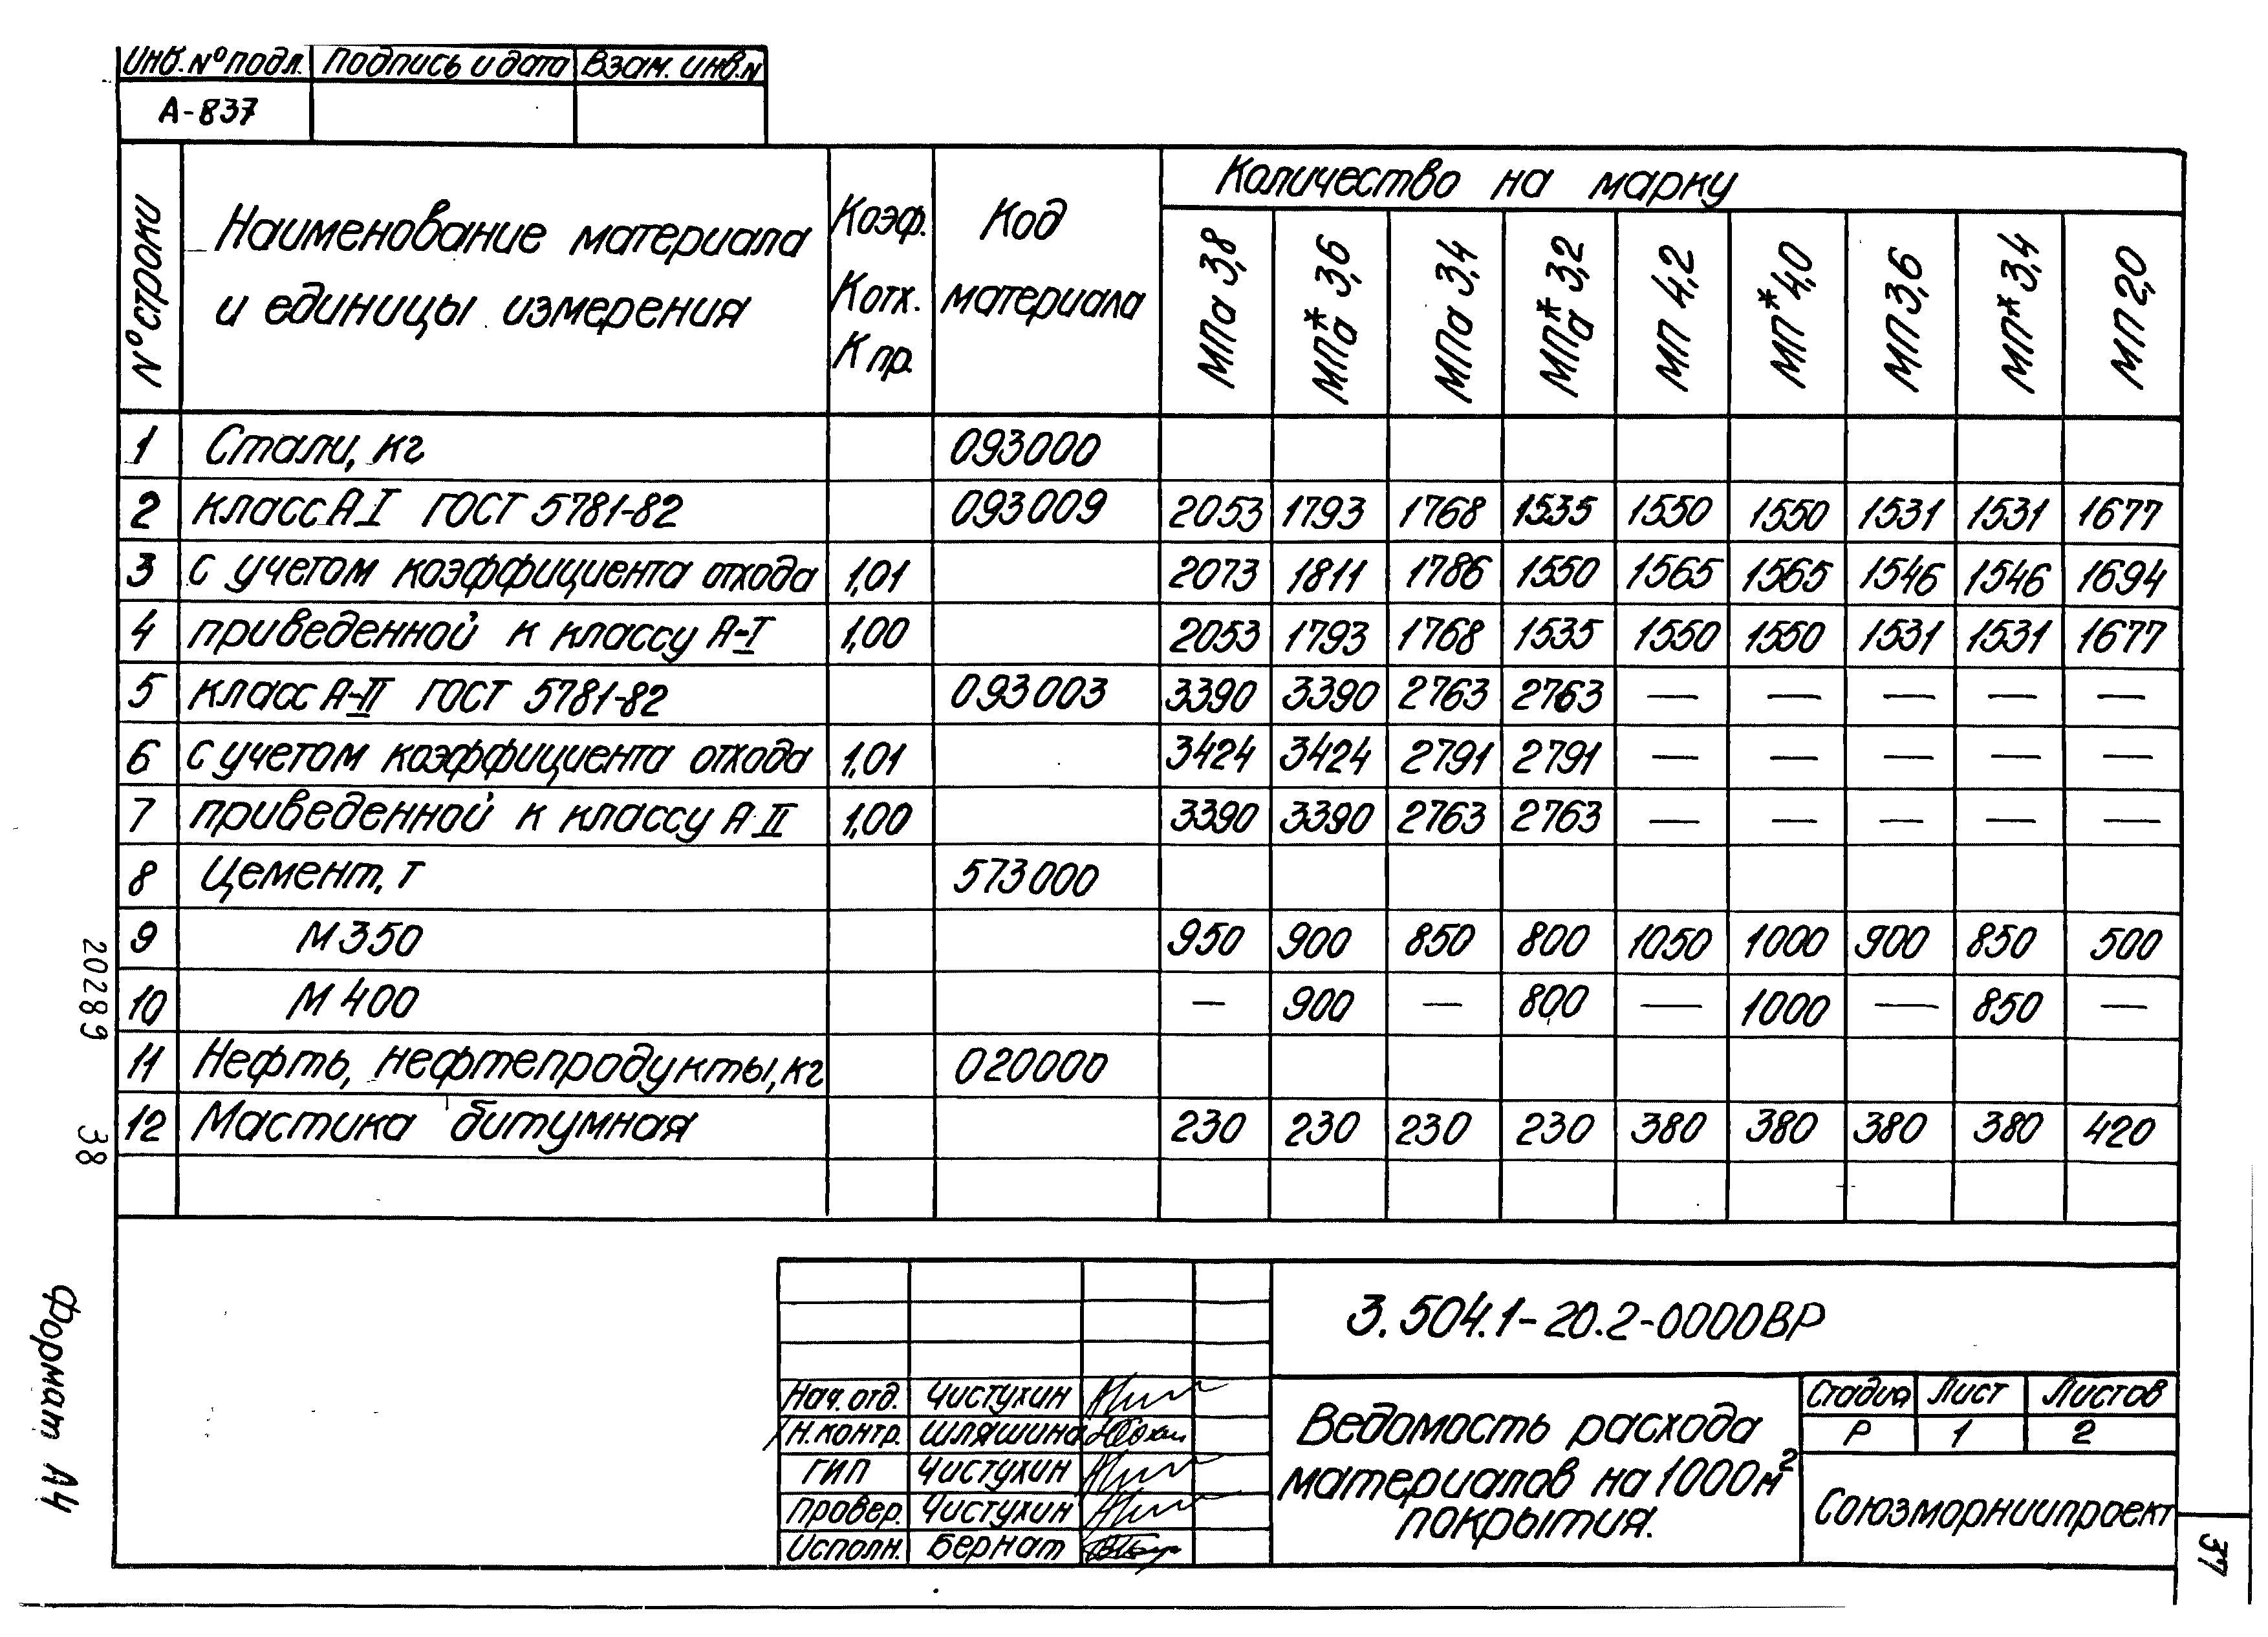 Инв. № подл. Подпись и дата Взам. инв. N
А-837
№ строки Наименование материала и единицы измерения Коэф. Котх. Кпр. Код материала Количество на марку
МПа 3,8 МПа* 3,6 МПа 3,4 МПа* 3,2 МП 4,2 МП* 4,0 МП 3,6 МП* 3,4 МП 2,0
1 Стали, кг 093000
2 класс А I ГОСТ 5781-82 093009 2053 1793 1768 1535 1550 1550 1531 1531 1677
3 с учетом коэффициента отхода 1,01 2073 1811 1786 1550 1565 1565 1546 1546 1694
4 приведенной к классу А-I 1,00 2053 1793 1768 1535 1550 1550 1531 1531 1677
5 класс А-II ГОСТ 5781-82 093003 3390 3390 2763 2763 — — — — —
6 с учетом коэффициента отхода 1,01 3424 3424 2791 2791 — — — — —
7 приведенной к классу А II 1,00 3390 3390 2763 2763 — — — — —
8 Цемент, т 573000
9 М 350 950 900 850 800 1050 1000 900 850 500
10 М 400 — 900 — 800 — 1000 — 850 —
11 Нефть, нефтепродукты, кг 020000
12 Мастика битумная 230 230 230 230 380 380 380 380 420
20289 38
Формат А4
3.504.1-20.2-0000ВР
Нач. отд. Чистухин
Н. контр. Шляшина
ГИП Чистухин
Провер. Чистухин
Исполн. Бернат
Ведомость расхода
материалов на 1000 м²
покрытия.
Стадия Лист Листов
Р 1 2
Союзморниипроект
37